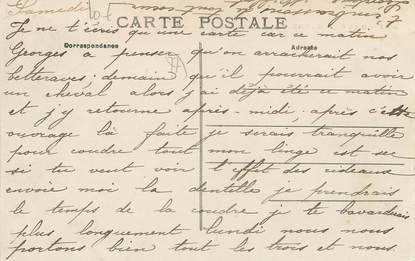 Samedi
CARTE POSTALE
Je ne t'écris qu'une carte car ce matin
Correspondance
Adresse
Georges a penser qu'on arracherait nos
betteraves demain qu'il pourrait avoir
un cheval alors j'ai déjà été ce matin
et j'y retourne après-midi, après c'
ouvrage là faite je serais tranquille
pour coudre tout mon linge est sec
si tu veut voir l'effet des rideaux
envoie moi la dentelle je prendrais
le temps de la coudre je te bavarderais
plus longuement lundi nous nous
portons bien tout les trois et nous